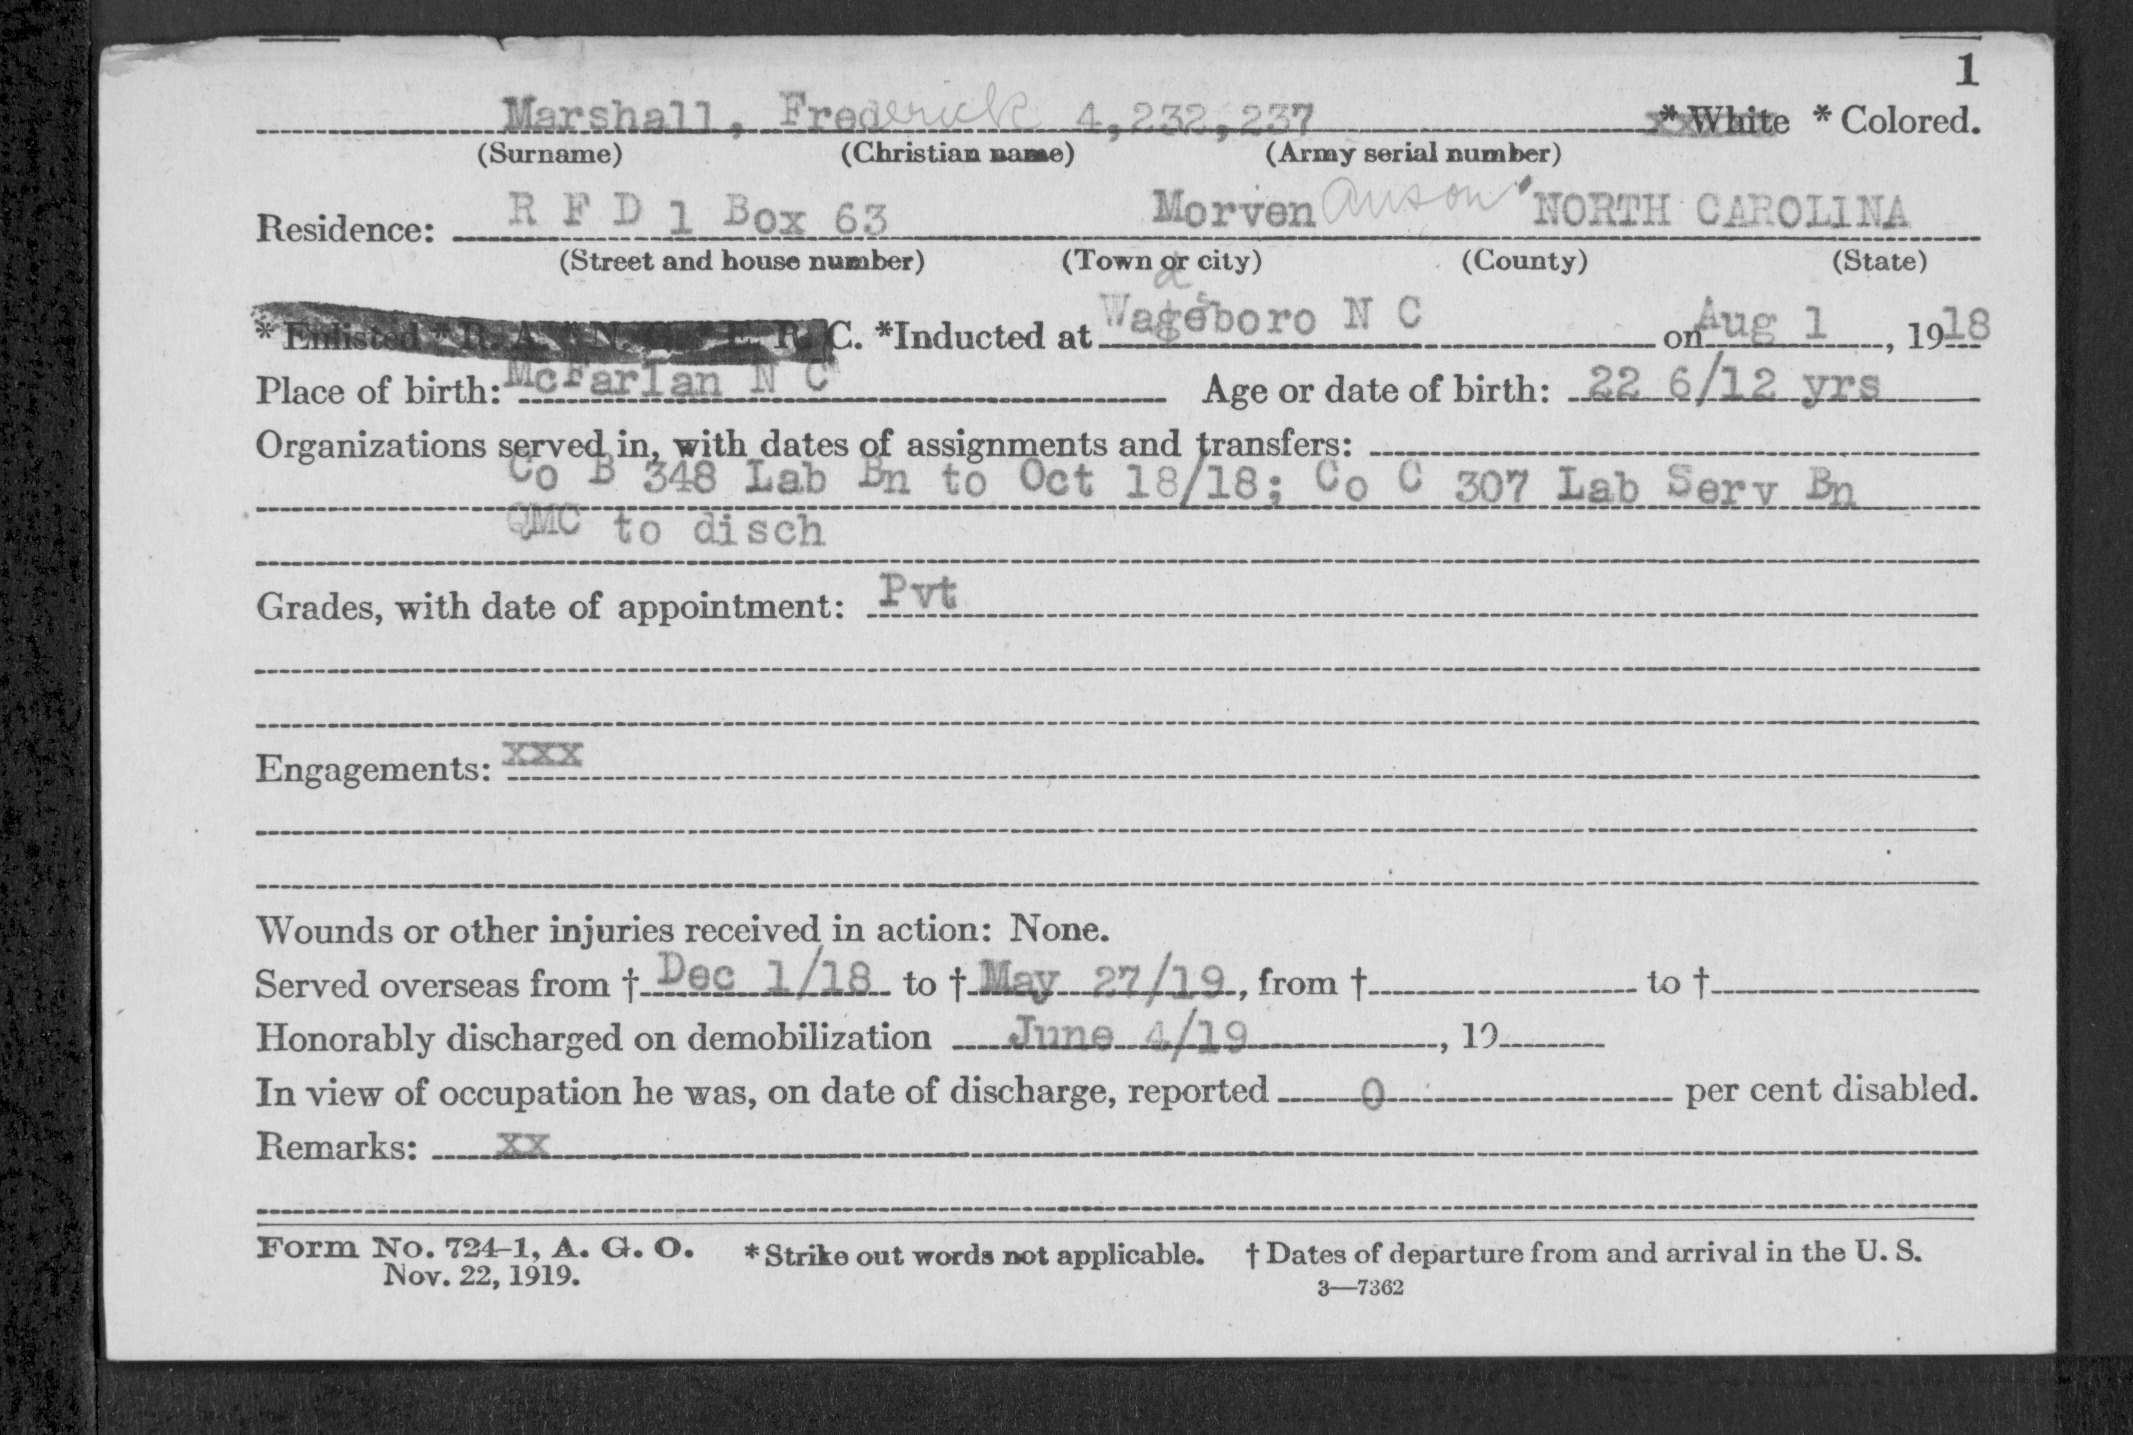 1
Marshall, Frederick 4,232,237 * White * Colored.
(Surname) (Christian name) (Army serial number)
Residence: R F D 1 Box 63 Morven Anson NORTH CAROLINA
(Street and house number) (Town or city) (County) (State)
* Enlisted * R. A. * N. G. * E. R. C. *Inducted at Wadesboro N C on Aug 1, 1918
Place of birth: McFarlan N C Age or date of birth: 22 6/12 yrs
Organizations served in, with dates of assignments and transfers:
Co B 348 Lab Bn to Oct 18/18; Co C 307 Lab Serv Bn
QMC to disch
Grades, with date of appointment: Pvt
Engagements: xxx
Wounds or other injuries received in action: None.
Served overseas from † Dec 1/18 to † May 27/19, from † to †
Honorably discharged on demobilization June 4/19, 19
In view of occupation he was, on date of discharge, reported 0 per cent disabled.
Remarks: xx
Form No. 724-1, A. G. O. *Strike out words not applicable. † Dates of departure from and arrival in the U. S.
Nov. 22, 1919. 3—7362